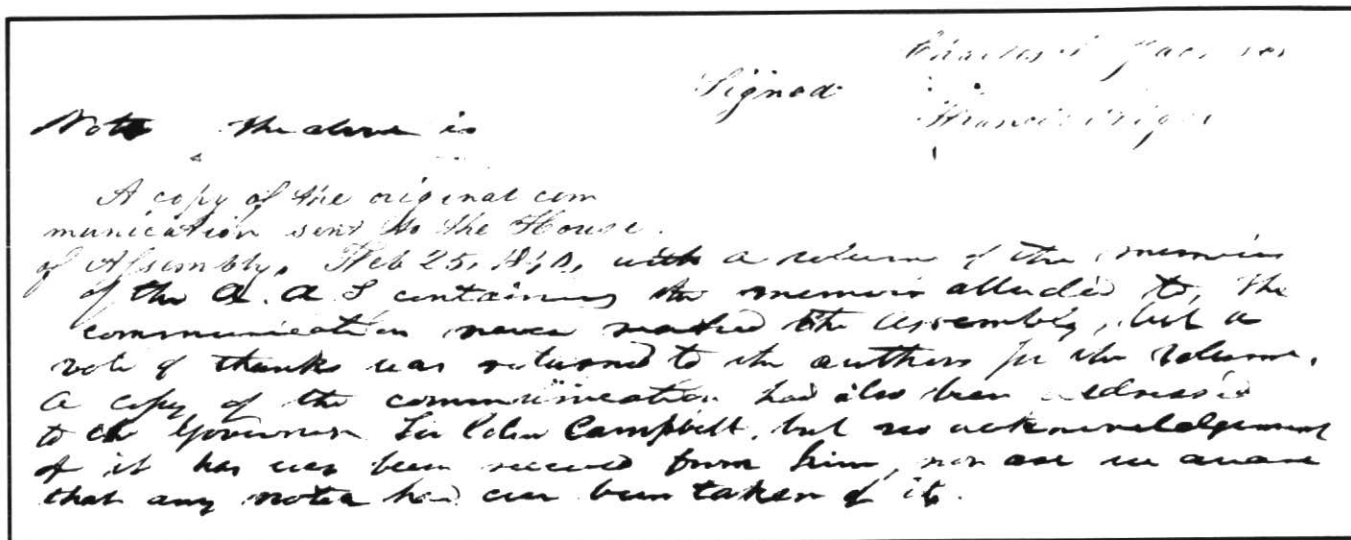 Signed
Note the above is
A copy of the original com
munication sent to the House
of Assembly, Feb 25, with a volume of the memoirs
of the A. A S containing the memoir alluded to, The
communication never reached the Assembly, but a
vote of thanks was returned to the authors for the volume.
A copy of the communication had also been addressed
to the Governor Sir Colin Campbell, but no acknowledgement
of it has ever been received from him, nor are we aware
that any notice had ever been taken of it.